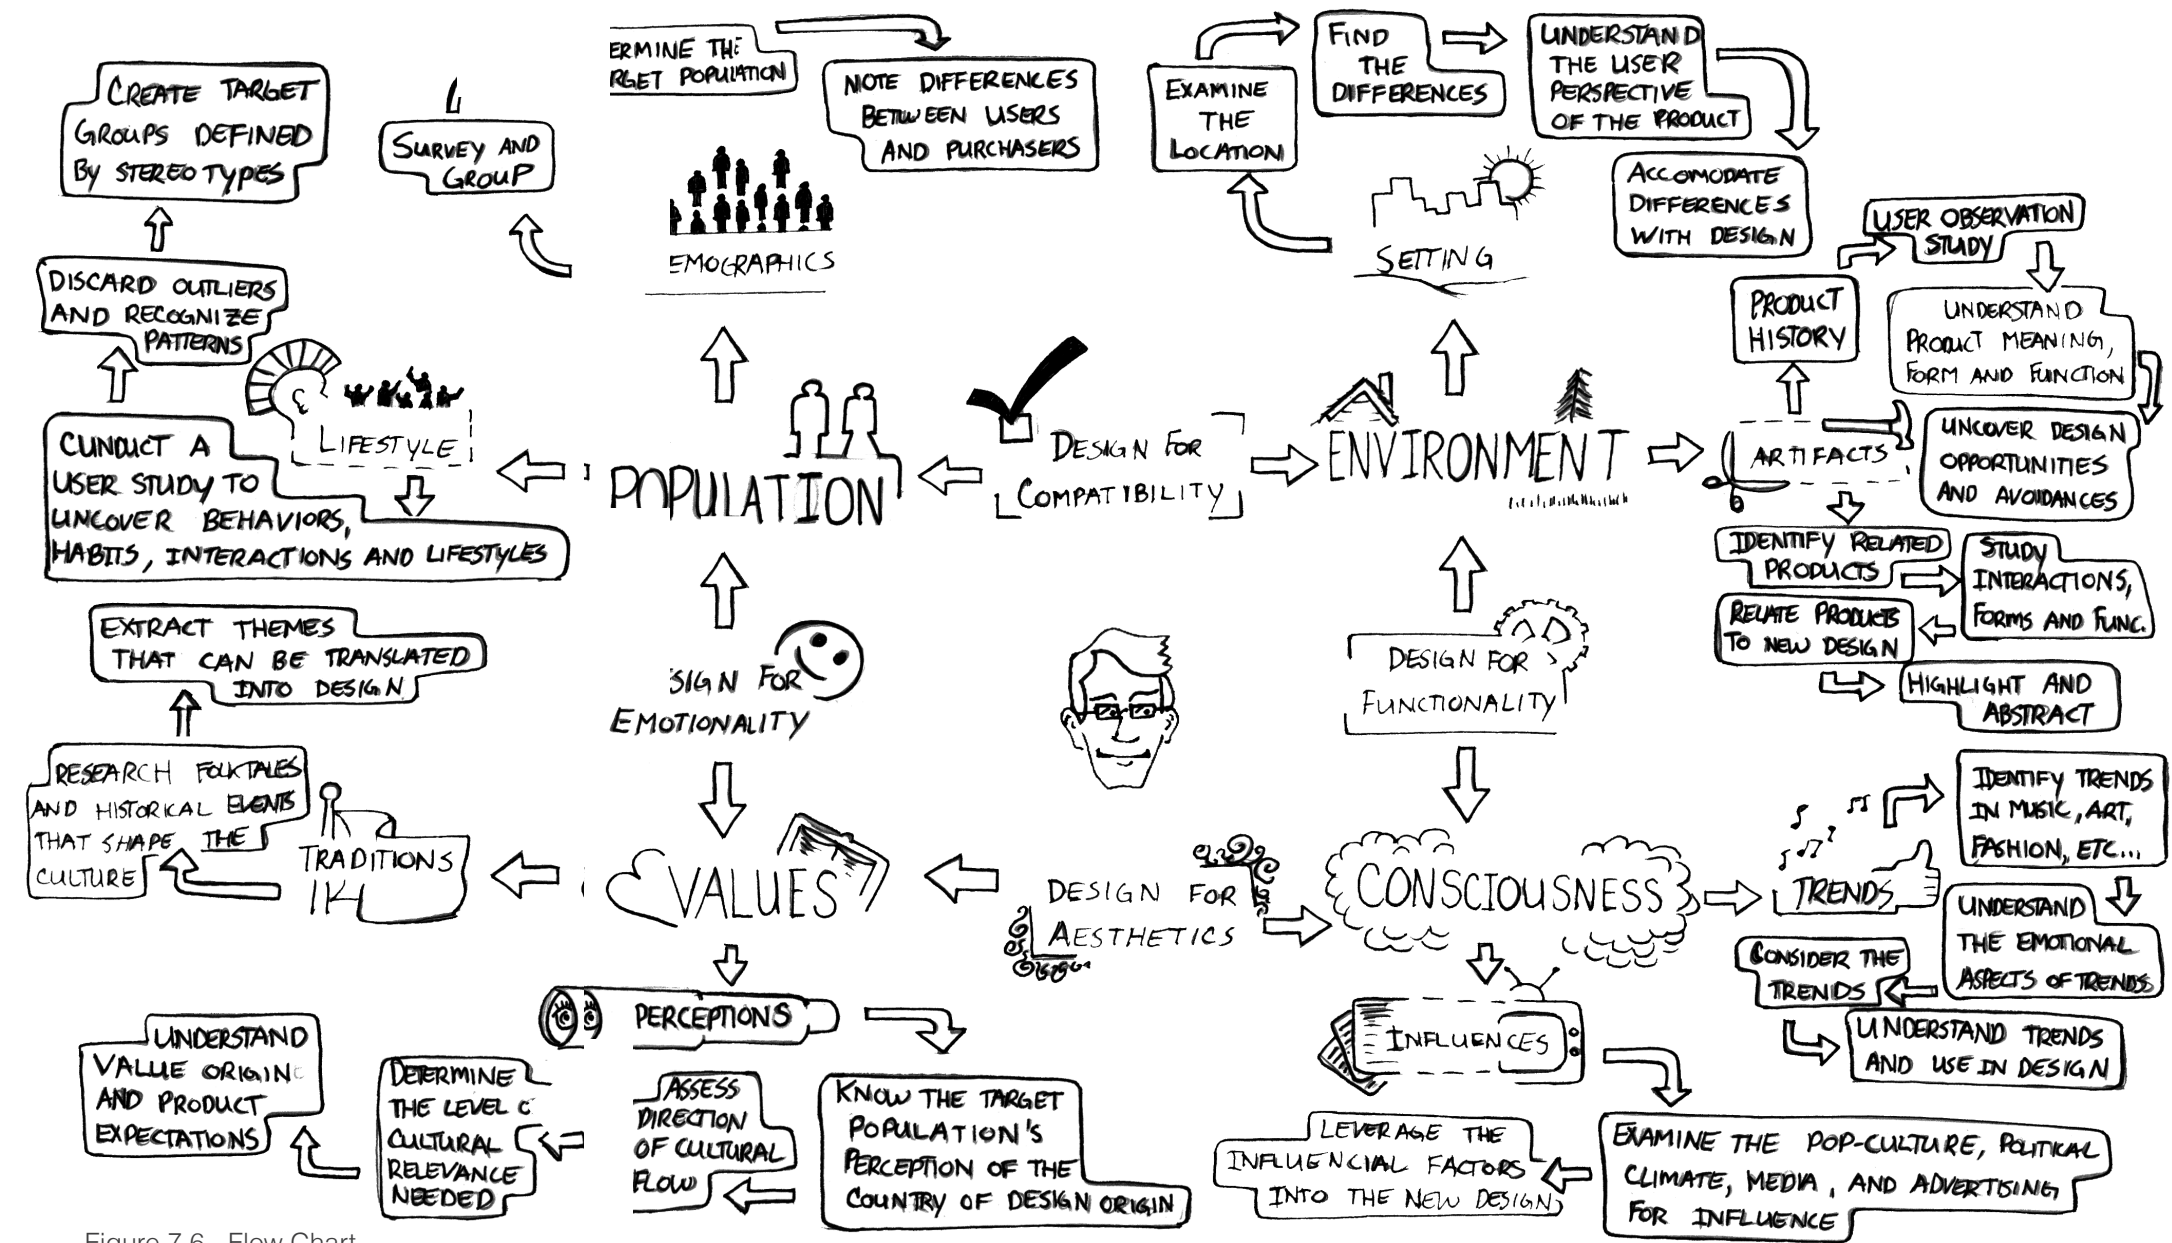 CREATE TARGET
GROUPS DEFINED
BY STEREOTYPES
SURVEY AND
GROUP
ERMINE THE
RGET POPULATION
NOTE DIFFERENCES
BETWEEN USERS
AND PURCHASERS
EXAMINE
THE
LOCATION
FIND
THE
DIFFERENCES
UNDERSTAND
THE USER
PERSPECTIVE
OF THE PRODUCT
ACCOMODATE
DIFFERENCES
WITH DESIGN
USER OBSERVATION
STUDY
DISCARD OUTLIERS
AND RECOGNIZE
PATTERNS
EMOGRAPHICS
SETTING
PRODUCT
HISTORY
UNDERSTAND
PRODUCT MEANING,
FORM AND FUNCTION
CUNDUCT A
USER STUDY TO
UNCOVER BEHAVIORS,
HABITS, INTERACTIONS AND LIFESTYLES
LIFESTYLE
POPULATION
DESIGN FOR
COMPATIBILITY
ENVIRONMENT
ARTIFACTS
UNCOVER DESIGN
OPPORTUNITIES
AND AVOIDANCES
IDENTIFY RELATED
PRODUCTS
STUDY
INTERACTIONS,
FORMS AND FUNC.
RELATE PRODUCTS
TO NEW DESIGN
HIGHLIGHT AND
ABSTRACT
EXTRACT THEMES
THAT CAN BE TRANSLATED
INTO DESIGN
SIGN FOR
EMOTIONALITY
DESIGN FOR
FUNCTIONALITY
RESEARCH FOLKTALES
AND HISTORICAL EVENTS
THAT SHAPE THE
CULTURE
TRADITIONS
VALUES
DESIGN FOR
AESTHETICS
CONSCIOUSNESS
TRENDS
IDENTIFY TRENDS
IN MUSIC, ART,
FASHION, ETC...
UNDERSTAND
THE EMOTIONAL
ASPECTS OF TRENDS
CONSIDER THE
TRENDS
UNDERSTAND TRENDS
AND USE IN DESIGN
PERCEPTIONS
INFLUENCES
UNDERSTAND
VALUE ORIGIN
AND PRODUCT
EXPECTATIONS
DETERMINE
THE LEVEL
CULTURAL
RELEVANCE
NEEDED
ASSESS
DIRECTION
OF CULTURAL
FLOW
KNOW THE TARGET
POPULATION'S
PERCEPTION OF THE
COUNTRY OF DESIGN ORIGIN
LEVERAGE THE
INFLUENCIAL FACTORS
INTO THE NEW DESIGN
EXAMINE THE POP-CULTURE, POLITICAL
CLIMATE, MEDIA, AND ADVERTISING
FOR INFLUENCE
Figure 7.6 Flow Chart